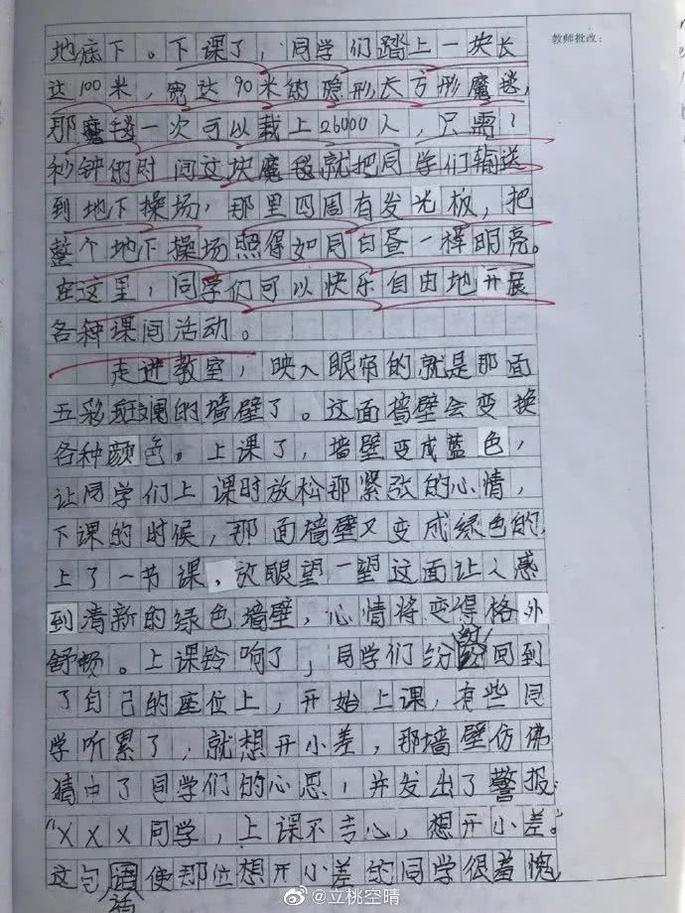 教师批改:
地底下。下课了，同学们踏上一块长
达100米，宽达90米的隐形长方形魔毯，
那魔毯一次可以载上26000人，只需1
秒钟的时间这块魔毯就把同学们输送
到地下操场，那里四周有发光板，把
整个地下操场照得如同白昼一样明亮。
在这里，同学们可以快乐自由地开展
各种课间活动。
走进教室，映入眼帘的就是那面
五彩斑斓的墙壁了。这面墙壁会变换
各种颜色。上课了，墙壁变成蓝色，
让同学们上课时放松那紧张的心情，
下课的时候，那面墙壁又变成绿色的，
上了一节课，放眼望一望这面让人感
到清新的绿色墙壁，心情将变得格外
舒畅。上课铃响了，同学们纷纷回到
了自己的座位上，开始上课，有些同
学听累了，就想开小差，那墙壁仿佛
猜中了同学们的心思，并发出了警报：
“XXX同学，上课不专心，想开小差。”
这句话使那位想开小差的同学很羞愧
@立桃空晴